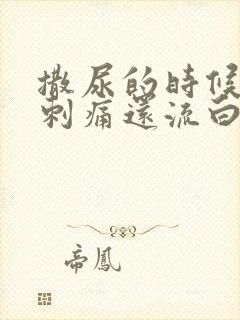 撒尿的時候
刺痛還流白
帝鳳